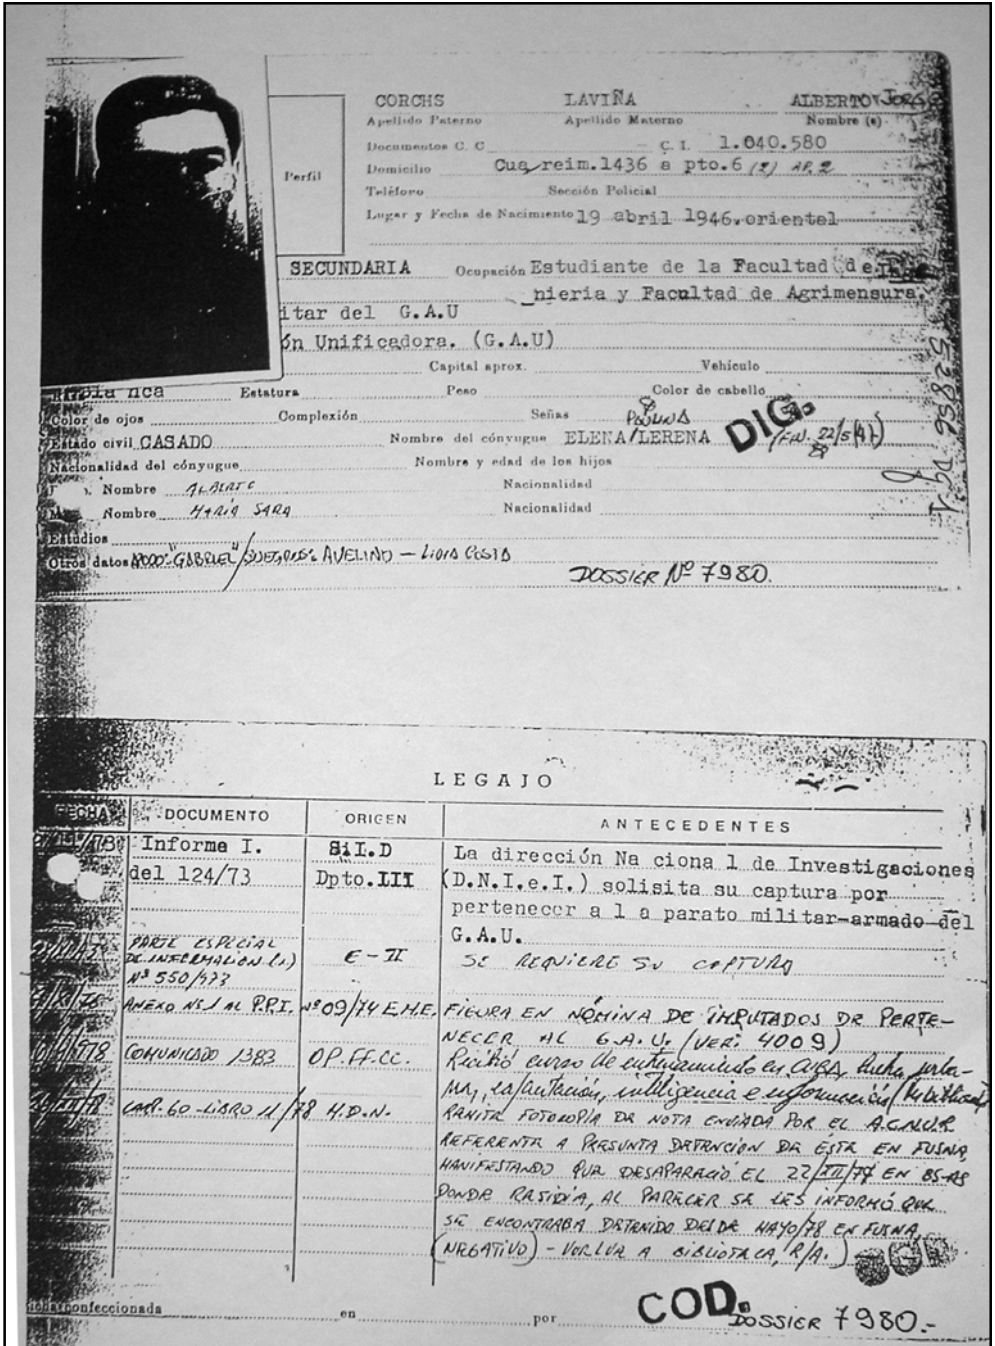 CORCHS LAVIÑA ALBERTO JORGE
Apellido Paterno Apellido Materno Nombre (s)
Documentos C. C C. I. 1.040.580
Perfil
Domicilio Cuareim.1436 a pto.6 (2) AP. 2
Teléfono Sección Policial
Lugar y Fecha de Nacimiento 19 abril 1946.oriental
SECUNDARIA Ocupación Estudiante de la Facultad de Inge
nieria y Facultad de Agrimensura.
itar del G.A.U
ón Unificadora. (G.A.U)
Capital aprox. Vehículo
nca Estatura Peso Color de cabello
Color de ojos Complexión Señas
Estado civil CASADO Nombre del cónyugue ELENA/LERENA DIG.
Nacionalidad del cónyugue Nombre y edad de los hijos
Nombre ALBERTO Nacionalidad
Nombre MARÍA SARA Nacionalidad
Estudios
Otros datos APODO: "GABRIEL"/SUEGROS: AVELINO - LIDIA COSTA
DOSSIER Nº 7980.
LEGAJO
FECHA DOCUMENTO ORIGEN ANTECEDENTES
Informe I. SiI.D La dirección Na ciona l de Investigaciones
del 124/73 Dpto.III (D.N.I.e.I.) solisita su captura por
pertenecer a l a parato militar-armado del
G.A.U.
PARTE ESPECIAL
DE INFORMACIÓN E-II SE REQUIERE SU CAPTURA
Nº 550/973
ANEXO Nº 1 AL P.P.I. Nº 09/74 E.M.E. FIGURA EN NÓMINA DE IMPUTADOS DE PERTE-
NECER AL G.A.U. (VER: 4009)
COMUNICADO 1383 OP.FF.CC. Recibió curso de entrenamiento en CUBA, lucha urba-
na, explotación, inteligencia e información
CARP. 60-LIBRO 11/78 M.D.N. REMITE FOTOCOPIA DE NOTA ENVIADA POR EL A.C.N.U.R
REFERENTE A PRESUNTA DETENCION DE ÉSTA EN FUSNA,
MANIFESTANDO QUE DESAPARECIÓ EL 22/XII/77 EN BS-AS
DONDE RESIDÍA, AL PARECER SE LES INFORMÓ QUE
SE ENCONTRABA DETENIDO DESDE MAYO/78 EN FUSNA,
(NEGATIVO) - VUELVE A BIBLIOTECA, R/A.)
confeccionada en por COD. DOSSIER 7980.-